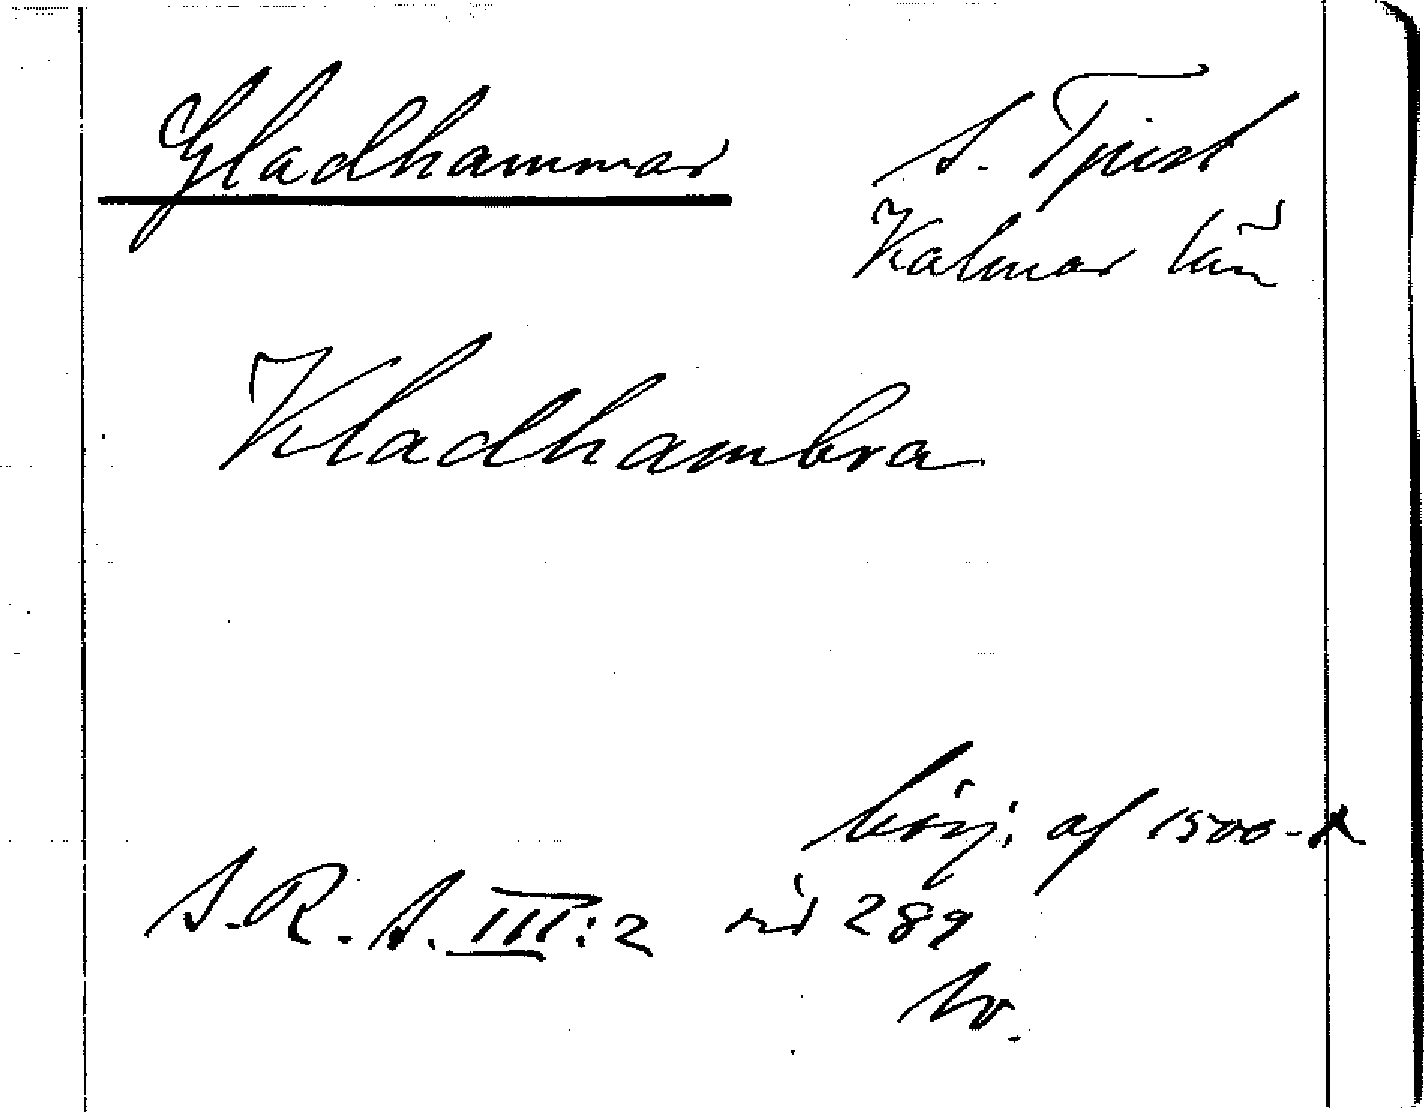 Gladhammar
S. Tjust
Kalmar län
Kladhambra
börj. af 1500-t
S. R. S. III:2 sid 289